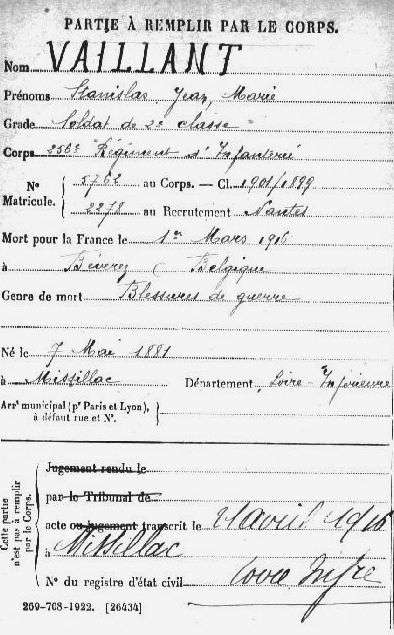 PARTIE À REMPLIR PAR LE CORPS.
Nom VAILLANT
Prénoms Stanislas, Jean, Marie
Grade Soldat de 2e classe
Corps 256e Régiment d'Infanterie
Nº Matricule. { 5762 au Corps. — Cl. 1901/1899
2278 au Recrutement Nantes
Mort pour la France le 1er Mars 1916
à ( Belgique
Genre de mort Blessures de guerre
Né le 7 Mai 1881
à Missillac Département Loire-Inférieure
Arrt municipal (pr Paris et Lyon), à défaut rue et Nº.
Cette partie n'est pas à remplir par le Corps.
Jugement rendu le
par le Tribunal de
acte ou jugement transcrit le avril 1916
à Missillac
Nº du registre d'état civil Loire Infre
269-708-1922. [26434]